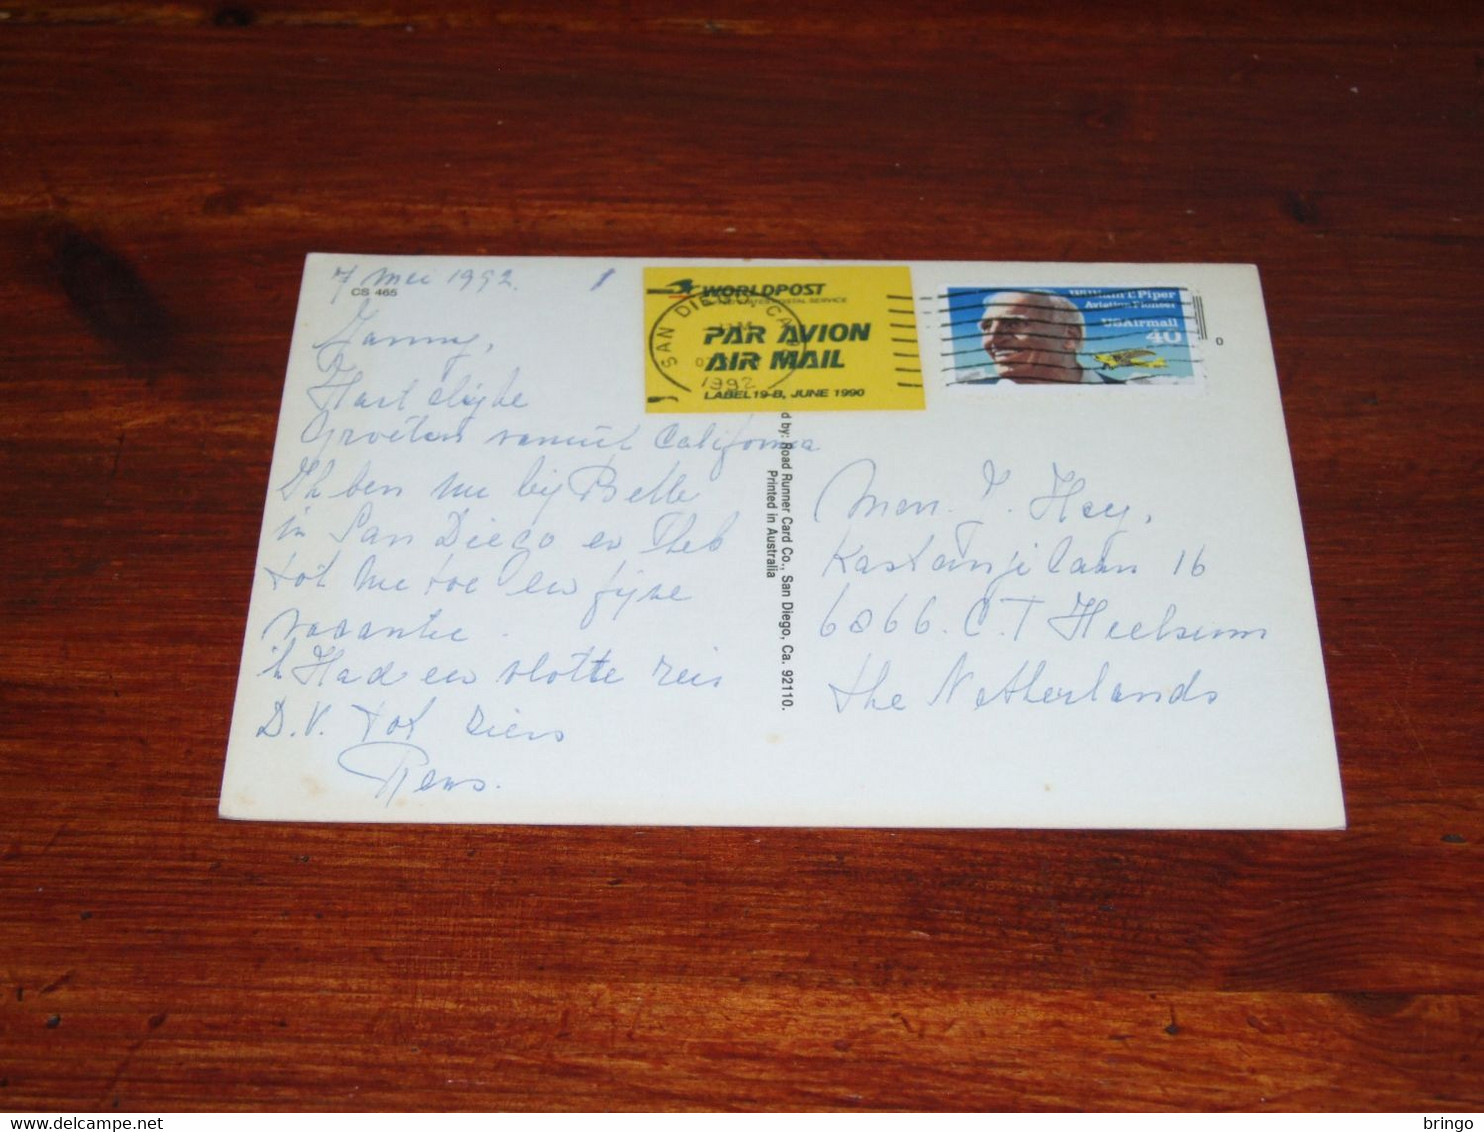 7 mei 1992.
CS 465
Janny,
Hartelijke
Groeten vanuit California
Ik ben nu bij Belle
in San Diego en heb
tot nu toe een fijne
vacantie.
ik Had een vlotte reis
D.V. tot ziens
Rens.
WORLDPOST
PAR AVION
AIR MAIL
LABEL 19-B, JUNE 1990
SAN DIEGO, CA
1992
William T. Piper
Aviation Pioneer
USAirmail
40
0
d by: Road Runner Card Co., San Diego, Ca. 92110.
Printed in Australia
J. Hey,
Kastanjelaan 16
6866. C.T Heelsum
the Netherlands
delcampe.net
bringo